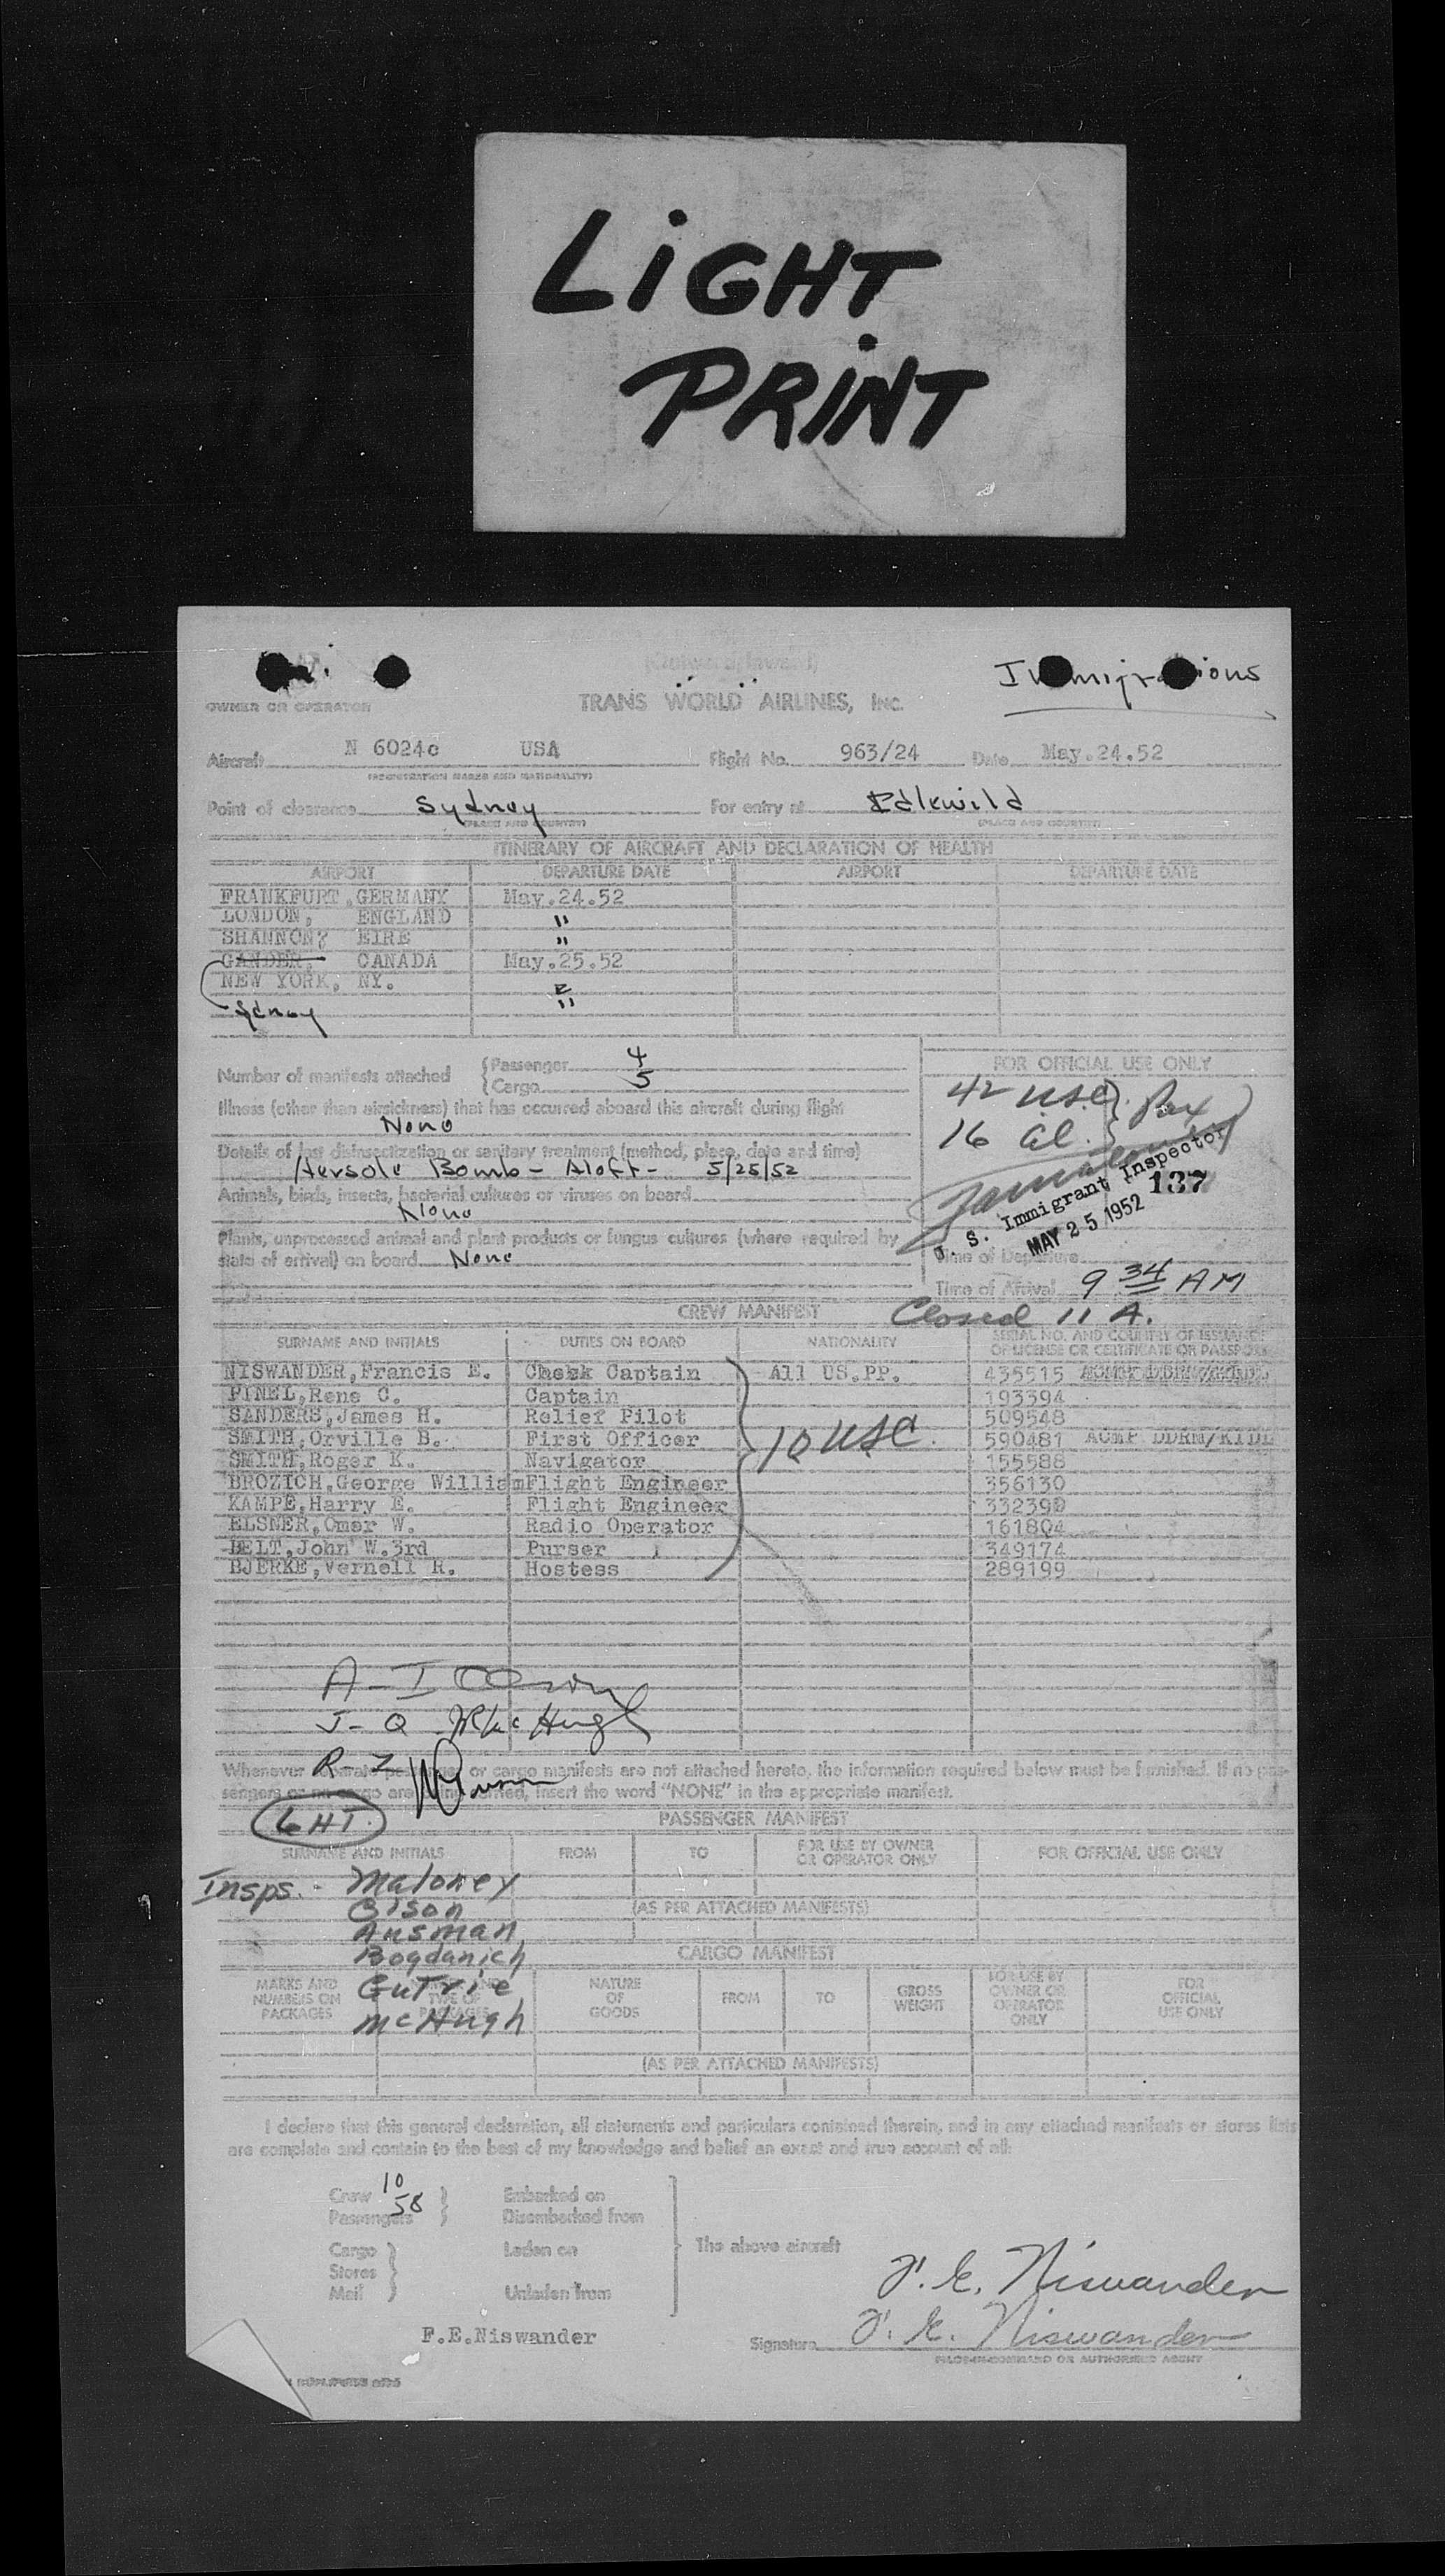 LiGHT
PRiNT
(Outward/Inward)
TRANS WORLD AIRLINES, INC.
OWNER OR OPERATOR
Aircraft N 6024c USA Flight No. 963/24 Date May.24.52
(REGISTRATION MARKS AND NATIONALITY)
Point of clearance Sydney For entry at Idlewild
(PLACE AND COUNTRY) (PLACE AND COUNTRY)
ITINERARY OF AIRCRAFT AND DECLARATION OF HEALTH
AIRPORT DEPARTURE DATE AIRPORT DEPARTURE DATE
FRANKFURT,GERMANY May.24.52
LONDON, ENGLAND "
SHANNON, EIRE "
GANDER, CANADA May.25.52
NEW YORK, NY.
Sydney "
Number of manifests attached {Passenger 4
{Cargo 5
FOR OFFICIAL USE ONLY
42 USC } Pax
16 al. }
Illness (other than airsickness) that has occurred aboard this aircraft during flight
None
Details of last disinsectization or sanitary treatment (method, place, date and time)
Aersole Bomb - Aloft - 5/25/52
Animals, birds, insects, bacterial cultures or viruses on board
None
Plants, unprocessed animal and plant products or fungus cultures (where required by
state of arrival) on board None
U. S. Immigrant Inspector 137
MAY 25 1952
Time of Departure
Time of Arrival 9 34 AM
Closed 11 A.
CREW MANIFEST
SURNAME AND INITIALS DUTIES ON BOARD NATIONALITY SERIAL NO. AND COUNTRY OF ISSUANCE
OF LICENSE OR CERTIFICATE OR PASSPORT
NISWANDER,Francis E. Check Captain All US.PP. 435515
PINEL,Rene C. Captain 193394
SANDERS,James H. Relief Pilot 509548
SMITH,Orville B. First Officer 10 USC. 590481
SMITH,Roger K. Navigator 155588
BROZICH,George William Flight Engineer 356130
KAMPE,Harry E. Flight Engineer 332390
ELSNER,Omer W. Radio Operator 161804
BELT,John W.3rd Purser 349174
BJERKE,Vernell R. Hostess 289199
A - I Olson
J - Q McHugh
R - Z
Whenever separate passenger or cargo manifests are not attached hereto, the information required below must be furnished. If no pas-
sengers or no cargo are being carried, insert the word "NONE" in the appropriate manifest.
6 HT.
PASSENGER MANIFEST
SURNAME AND INITIALS FROM TO FOR USE BY OWNER
OR OPERATOR ONLY FOR OFFICIAL USE ONLY
Insps. - Maloney
Olson
(AS PER ATTACHED MANIFESTS)
Ausman
Bogdanich
CARGO MANIFEST
Gutrie
McHugh
MARKS AND
NUMBERS ON
PACKAGES
TYPE OF
PACKAGES
NATURE
OF
GOODS
FROM TO GROSS
WEIGHT
FOR USE BY
OWNER OR
OPERATOR
ONLY
FOR
OFFICIAL
USE ONLY
(AS PER ATTACHED MANIFESTS)
I declare that this general declaration, all statements and particulars contained therein, and in any attached manifests or stores lists
are complete and contain to the best of my knowledge and belief an exact and true account of all:
Crew 10 Embarked on
Passengers 58 Disembarked from
Cargo Laden on The above aircraft
Stores
Mail Unladen from
F. E. Niswander
F.E.Niswander
Signature F. E. Niswander
PILOT-IN-COMMAND OR AUTHORIZED AGENT